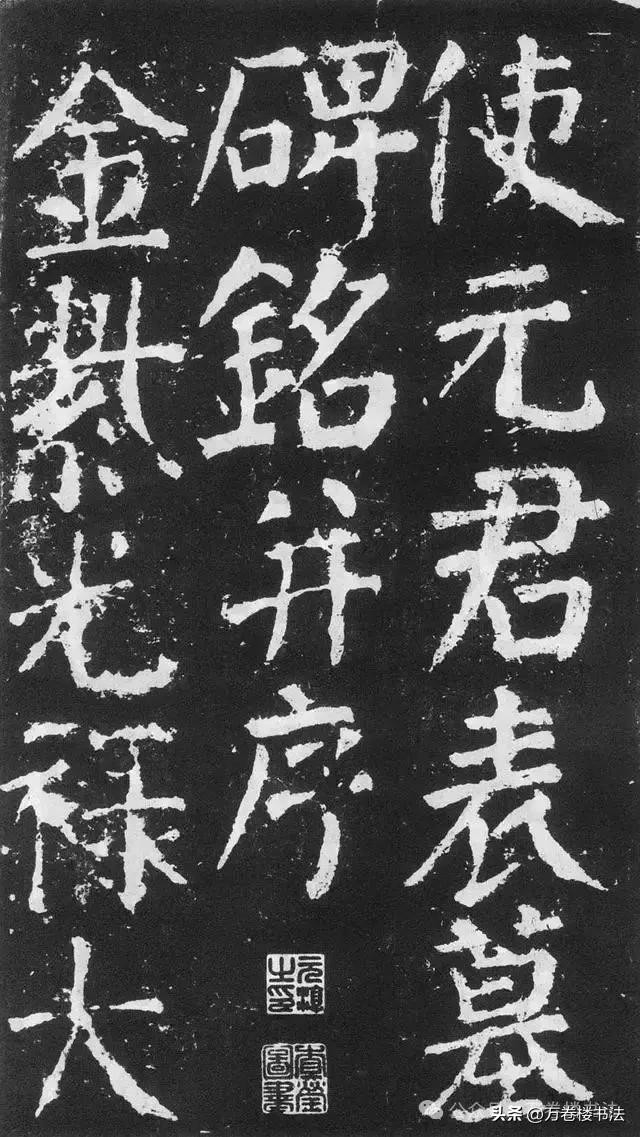 使元君表墓
碑銘并序
金紫光禄大
头条 @万卷楼书法